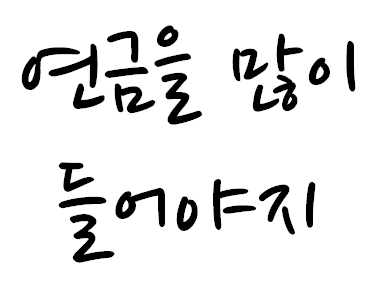 연금을 많이
들어야지